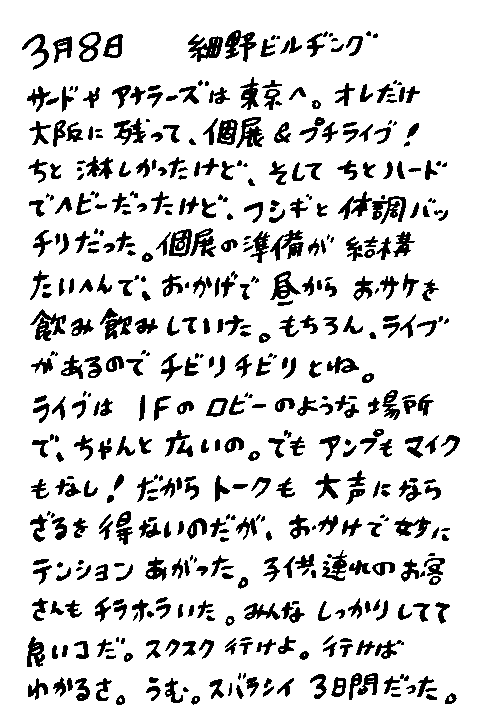 3月8日 細野ビルヂング
サードや アナラーズは 東京へ。オレだけ
大阪に 残って、個展&プチライブ！
ちと 淋しかったけど、そして ちとハード
でヘビーだったけど、フシギと 体調バッ
チリだった。個展の準備が 結構
たいへんで、おかげで 昼から おサケを
飲み飲みしていた。もちろん、ライブ
があるので チビリチビリとね。
ライブは 1Fの ロビーのような 場所
で、ちゃんと 広いの。でも アンプも マイク
もなし！ だから トークも 大声になら
ざるを 得ないのだが、おかげで 妙に
テンション あがった。子供連れの お客
さんも チラホラいた。みんな しっかりしてて
良いコだ。スクスク 行けよ。行けば
わかるさ。うむ。スバラシイ 3日間だった。